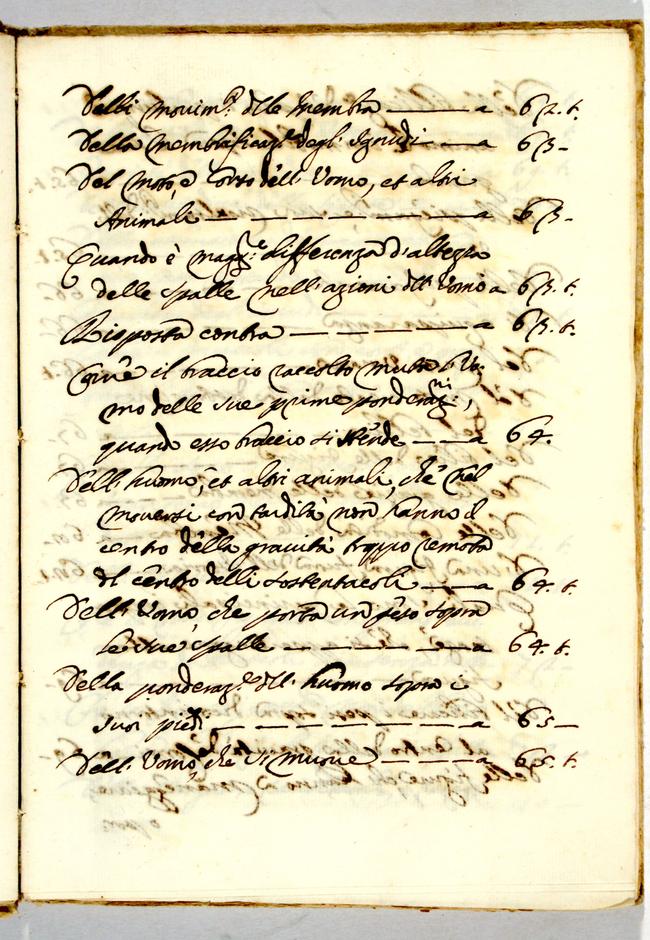 Delli movim.ti dlle membra ——— a 62. t.
Della membrificaz.e degl'Ignudi — a 63 -
Del moto, e corso dell'Uomo, et altri
Animali — — — — — — a 63 -
Quando è magg.re differenza d'altezza
delle spalle nell'azioni dll'Uomo a 63. t.
Risposta contra — — — — a 63. t.
Come il braccio raccolto muta l'Uo-
mo delle sue prime ponderaz.ni,
quando esso braccio si stende — — a 64.
Dell'huomo, et altri animali, che nel
moversi con tardità non hanno il
centro della gravità troppo remota
dl centro delli sostentacoli — — a 64. t.
Dell'Uomo, che porta un peso sopra
le sue spalle — — — — — a 64. t.
Della ponderaz.e dll'huomo sopra i
suoi piedi — — — — — — a 65 —
Dell'Uomo che si muove — — — a 65. t.